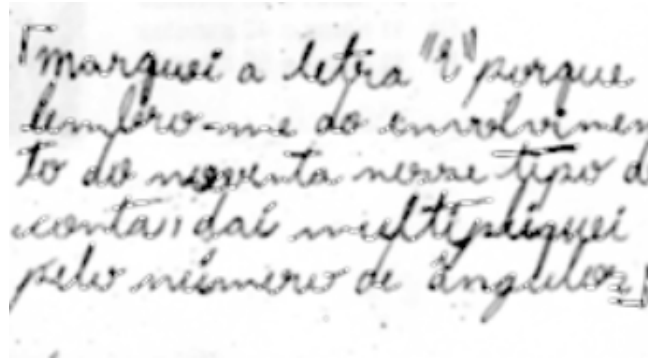 "marquei a letra "E" porque
lembro-me do envolvimen
to do noventa nesse tipo d
conta, daí multipliquei
pelo número de ângulos"